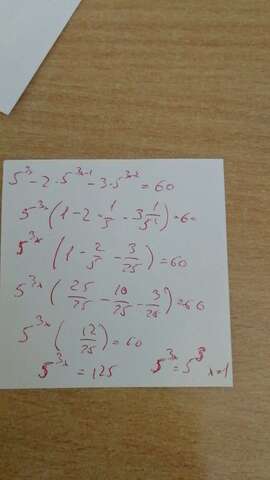 5^{3x} - 2 · 5^{3x-1} - 3 · 5^{3x-2} = 60
5^{3x} (1 - 2 · \frac{1}{5} - 3 \frac{1}{5^2}) = 60
5^{3x} (1 - \frac{2}{5} - \frac{3}{25}) = 60
5^{3x} (\frac{25}{25} - \frac{10}{25} - \frac{3}{25}) = 60
5^{3x} (\frac{12}{25}) = 60
5^{3x} = 125 5^{3x} = 5^3 x=1